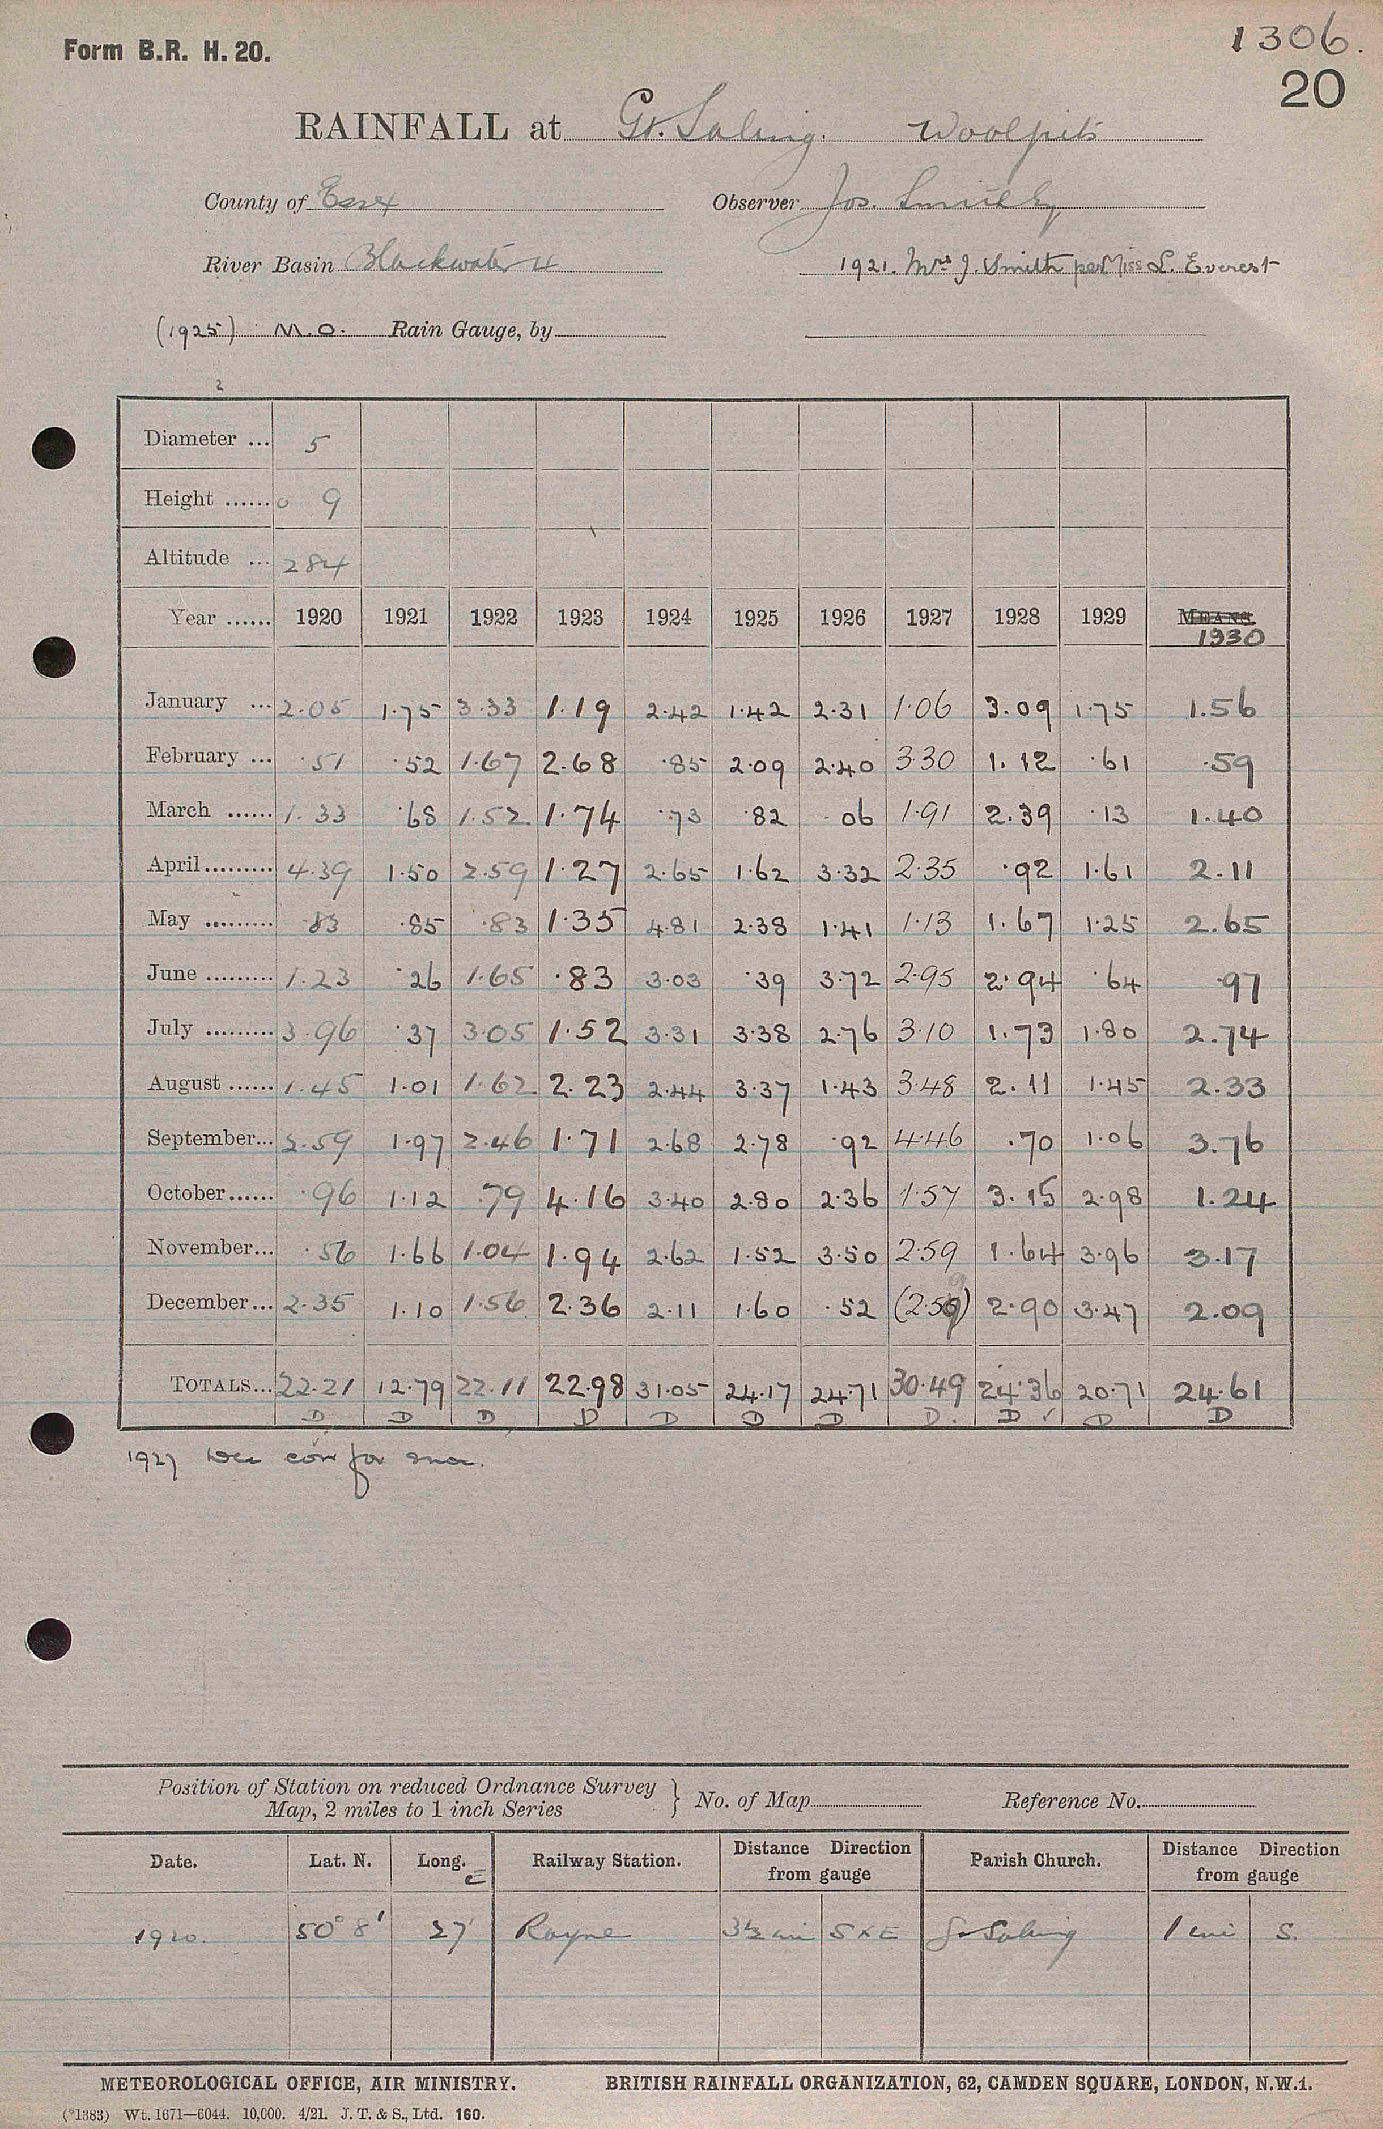 Form B.R. H. 20.
1306.
20
RAINFALL at Gt. Saling. Woolpits
County of Essex Observer Jos. Smith
River Basin Blackwater 1921. Mrs J. Smith per Miss L. Everest
(1925) M.O. Rain Gauge, by
Diameter ... 5
Height ...... 0 9
Altitude ... 284
Year ...... 1920 1921 1922 1923 1924 1925 1926 1927 1928 1929 MEANS. 1930
January ... 2.05 1.75 3.33 1.19 2.42 1.42 2.31 1.06 3.09 1.75 1.56
February ... .51 .52 1.67 2.68 .85 2.09 2.40 3.30 1.12 .61 .59
March ...... 1.33 .68 1.52 1.74 .73 .82 .06 1.91 2.39 .13 1.40
April ......... 4.39 1.50 2.59 1.27 2.65 1.62 3.32 2.35 .92 1.61 2.11
May ......... .83 .85 .83 1.35 4.81 2.38 1.41 1.13 1.67 1.25 2.65
June ......... 1.23 .26 1.65 .83 3.03 .39 3.72 2.95 2.94 .64 .97
July ......... 3.96 .37 3.05 1.52 3.31 3.38 2.76 3.10 1.73 1.80 2.74
August ...... 1.45 1.01 1.62 2.23 2.44 3.37 1.43 3.48 2.11 1.45 2.33
September... 2.59 1.97 2.46 1.71 2.68 2.78 .92 4.46 .70 1.06 3.76
October...... .96 1.12 .79 4.16 3.40 2.80 2.36 1.57 3.15 2.98 1.24
November... .56 1.66 1.04 1.94 2.62 1.52 3.50 2.59 1.64 3.96 3.17
December... 2.35 1.10 1.56 2.36 2.11 1.60 .52 (2.59) 2.90 3.47 2.09
TOTALS... 22.21 12.79 22.11 22.98 31.05 24.17 24.71 30.49 24.36 20.71 24.61
D D D D D D D D. D ✓ D D
1927 Dec corr for snow.
Position of Station on reduced Ordnance Survey
Map, 2 miles to 1 inch Series } No. of Map Reference No.
Date. Lat. N. Long. E Railway Station. Distance Direction from gauge Parish Church. Distance Direction from gauge
1920. 50° 8' 27' Rayne 3½ mi S x E Gt Saling 1 mi S.
METEOROLOGICAL OFFICE, AIR MINISTRY. BRITISH RAINFALL ORGANIZATION, 62, CAMDEN SQUARE, LONDON, N.W.1.
(*1383) Wt. 1671—6044. 10,000. 4/21. J. T. & S., Ltd. 160.